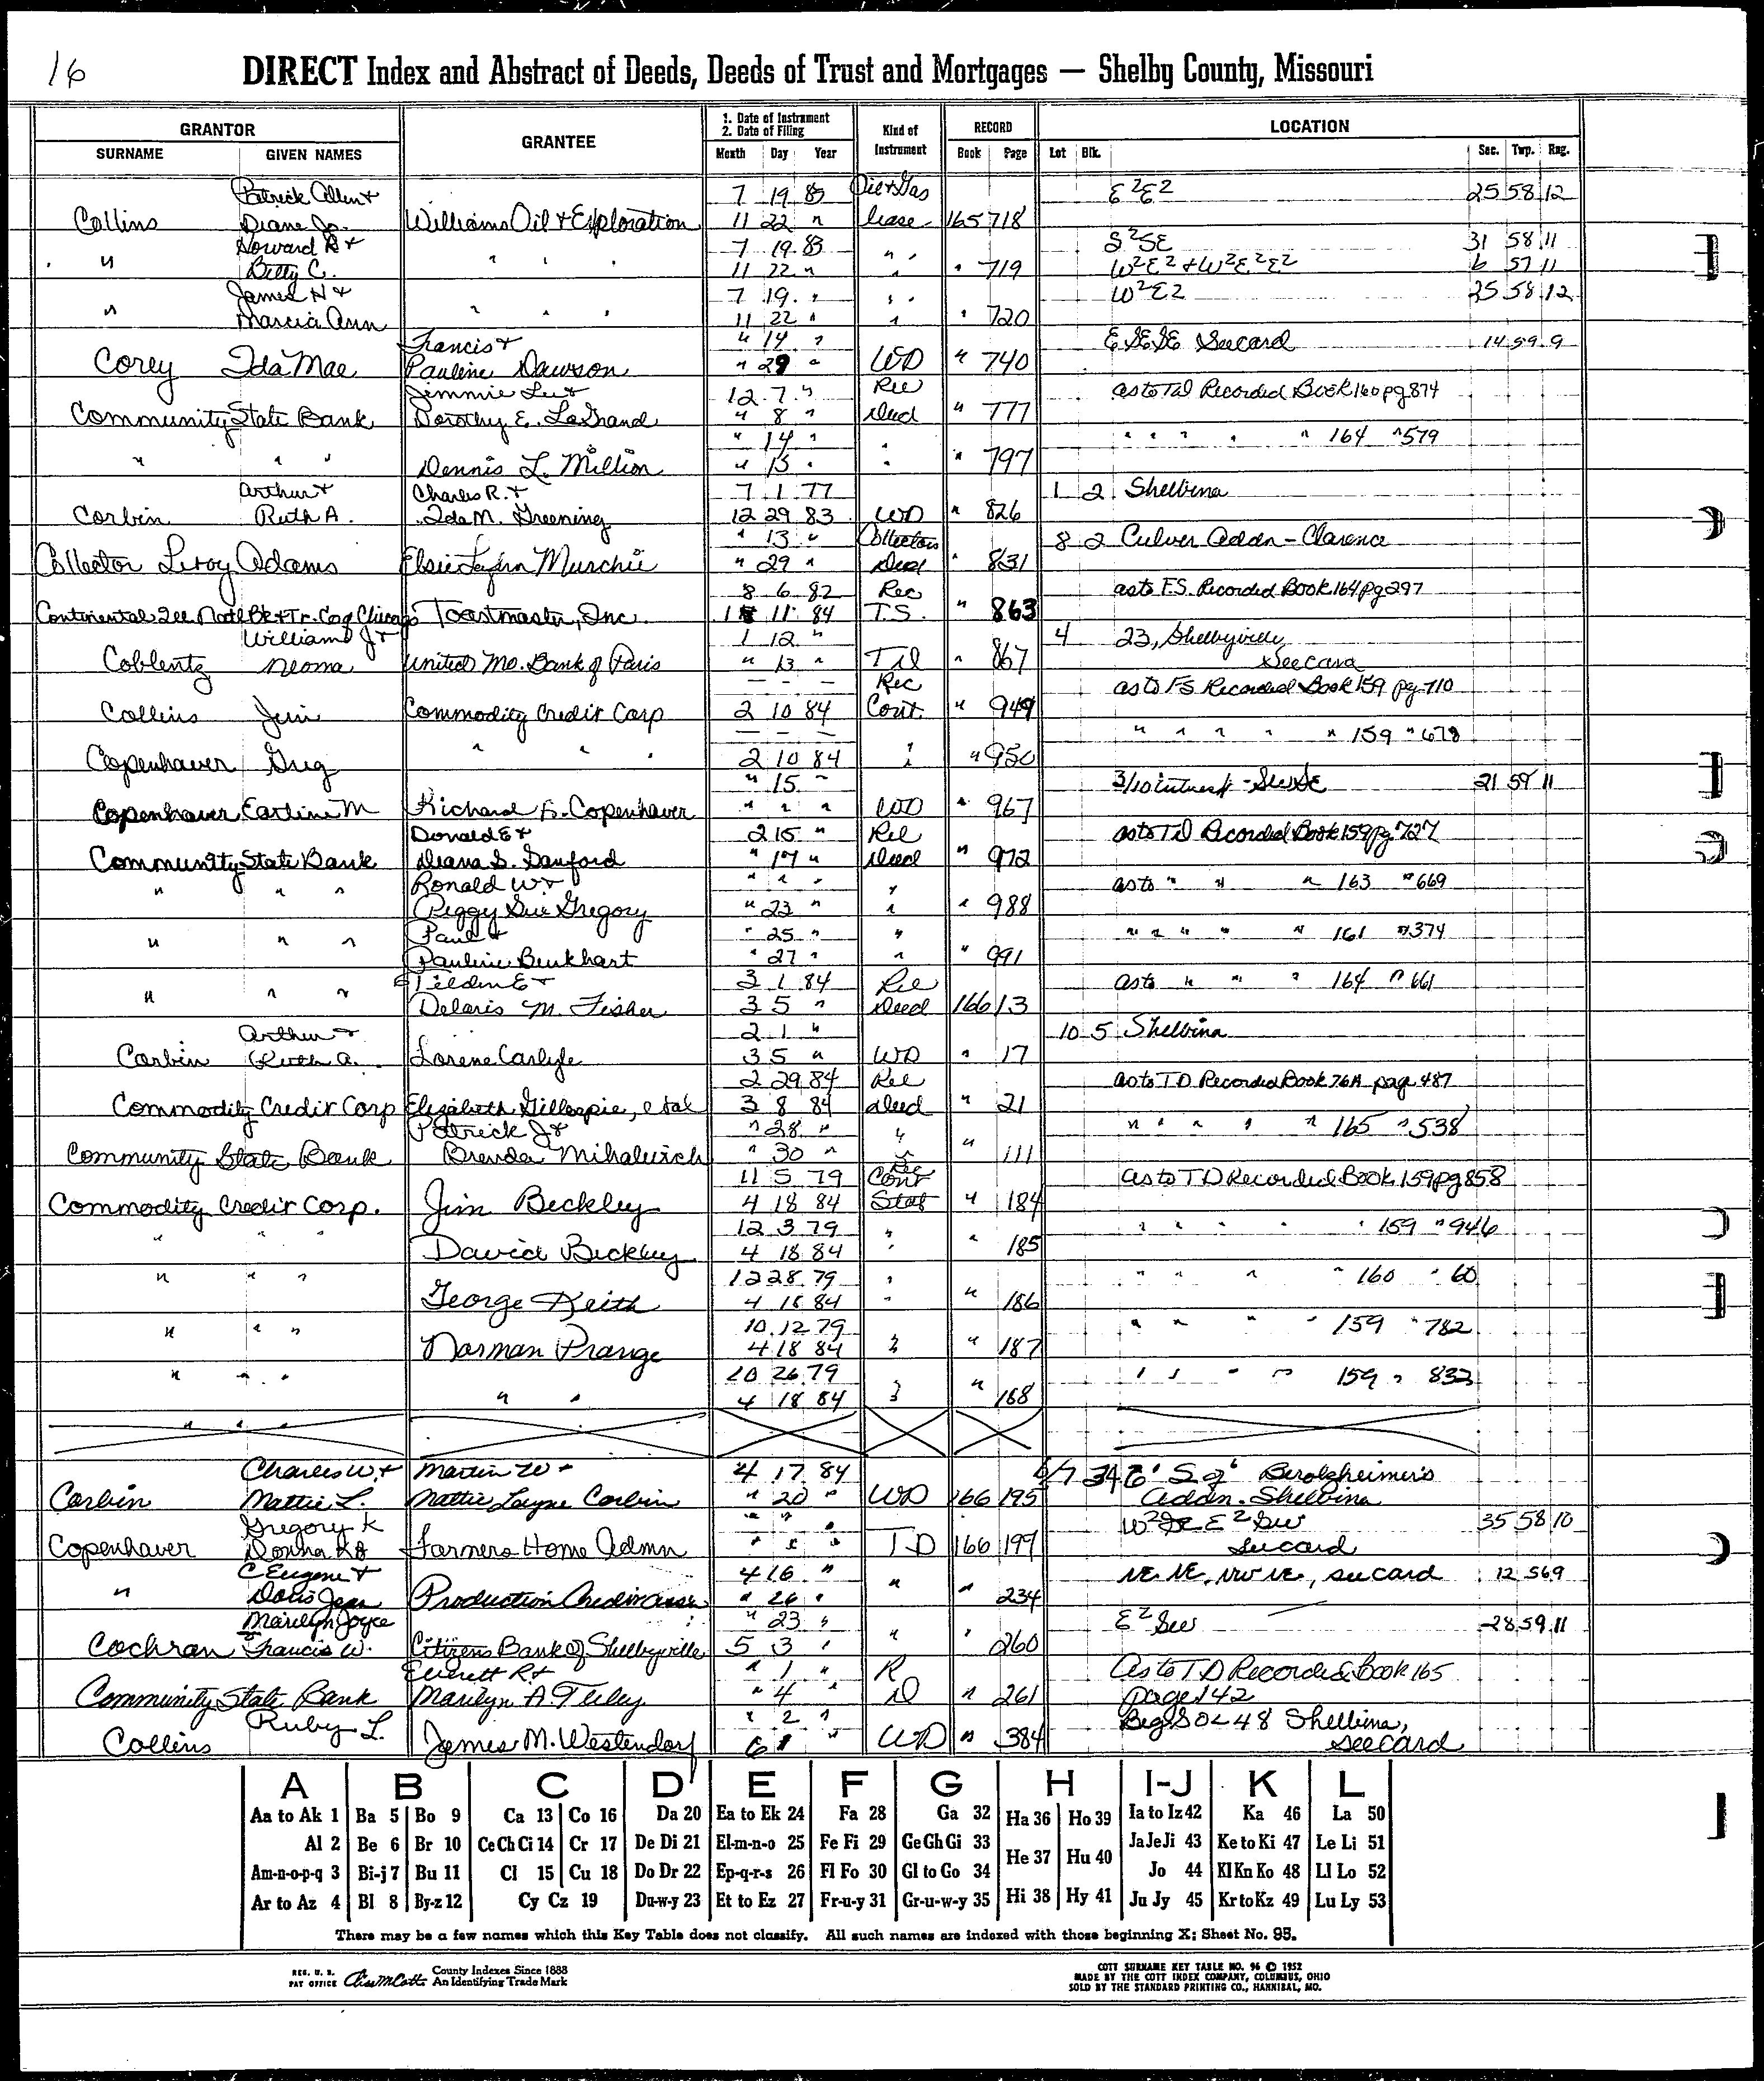 16
DIRECT Index and Abstract of Deeds, Deeds of Trust and Mortgages — Shelby County, Missouri
GRANTOR GRANTEE 1. Date of Instrument 2. Date of Filing Kind of Instrument RECORD LOCATION
SURNAME GIVEN NAMES Month Day Year Book Page Lot Blk. Sec. Twp. Rng.
Patrick Allen + 7 19 83 Oil + Gas E²E² 25 58 12
Collins Diane Jo. Williams Oil + Exploration 11 22 " lease 165 718
Howard R + 7 19 83 " " S²SE 31 58 11
" Betty C. " " " 11 22 " " " 719 W²E² + W²E²E² 6 57 11
James H + 7 19 " " " W²E2 25 58 12
" Marcia Ann " " " 11 22 " " " 720
Francis + " 14 " E SE SE See card 14 59 9
Corey Ida Mae Pauline Dawson " 29 " WD " 740
Jimmie Lee + 12 7 " Rel as to TD Recorded Book 160 pg 874
Community State Bank Dorothy E. LaGrand " 8 " Deed " 777
" 14 " " " " " " 164 " 579
" " " Dennis L. Million " 15 " " " 797
Arthur + Charles R. + 7 1 77 1 2 Shelbina
Corbin Ruth A. Ida M. Greening 12 29 83 WD " 826
" 13 " Collectors 8 2 Culver Addn - Clarence
Collector Leroy Adams Elsie Murchie " 29 " Deed " 831
8 6 82 Rec as to F.S. Recorded Book 164 pg 297
Continental Ill Natl Bk + Tr. Cog Chicago Toastmaster, Inc. 1 11 84 T.S. " 863
William J + 1 12 " 4 23, Shelbyville
Coblentz Neoma United Mo. Bank of Paris " 13 " TD " 867 See card
— — — Rec as to FS Recorded Book 159 pg 710
Collins Jim Commodity Credit Corp 2 10 84 Cont. " 949
— — — " " " " " 159 " 678
Copenhaver Greg " " " 2 10 84 " " 950
" 15 " 3/10 interest - SWSE 21 59 11
Copenhaver Earline M Richard E. Copenhaver " " " WD " 967
Donald E + 2 15 " Rel as to TD Recorded Book 159 pg 727
Community State Bank Diana S. Sanford " 17 " Deed " 972
Ronald W + " " " " as to " " " 163 " 669
" " " Peggy Sue Gregory " 23 " " " 988
Paul + " 25 " " " " " " " 161 " 374
" " " Pauline Benkhart " 27 " " " 991
Tilden E + 3 1 84 Rel as to " " " 164 " 661
" " " Deloris M. Fisher 3 5 " Deed 166 13
Arthur + 2 1 " 10 5 Shelbina
Corbin Ruth A. Lorene Carlyle 3 5 " WD " 17
2 29 84 Rel as to TD Recorded Book 76A page 487
Commodity Credit Corp Elizabeth Gillespie, etal 3 8 84 Deed " 21
Patrick J + " 28 " " " " " " " 165 " 538
Community State Bank Brenda Mihalevich " 30 " " " 111
11 5 79 Rec Cont as to TD Recorded Book 159 pg 858
Commodity Credit Corp. Jim Beckley 4 18 84 Stat " 184
12 3 79 " " " " " 159 " 946
" " " David Beckley 4 18 84 " " 185
12 28 79 " " " " " 160 " 60
" " " George Keith 4 18 84 " " 186
10 12 79 " " " " 159 " 782
" " " Norman Prange 4 18 84 " " 187
10 26 79 " " " " 159 " 833
" " " " " 4 18 84 " " 168
" " "
Charles W. + Martin W + 4 17 84 6/7 34 6' S of Berolzheimer's
Corbin Mattie L. Mattie Layne Corbin " 20 " WD 166 195 Addn. Shelbina
Gregory K " " " W²SE E²SW 35 58 10
Copenhaver Donna K Farmers Home Admn " " " TD 166 199 See card
C Eugene + 4 16 " NE NE, NW NE, see card 12 56 9
" Doris Jean Production Credit Assn " 26 " " " 234
Marilyn Joyce " 23 " E² SW 28 59 11
Cochran Francis W. Citizens Bank of Shelbyville 5 3 " " " 260
Everett R + " 1 " R As to TD Recorded Book 165
Community State Bank Marilyn A " 4 " D " 261 page 142
Ruby L. " 2 " Beg SO L 48 Shelbina,
Collins James M. Westendorf 6 1 " WD " 384 See card
A B C D E F G H I-J K L
Aa to Ak 1 Ba 5 Bo 9 Ca 13 Co 16 Da 20 Ea to Ek 24 Fa 28 Ga 32 Ha 36 Ho 39 Ia to Iz 42 Ka 46 La 50
Al 2 Be 6 Br 10 Ce Ch Ci 14 Cr 17 De Di 21 El-m-n-o 25 Fe Fi 29 Ge Gh Gi 33 He 37 Hu 40 Ja Je Ji 43 Ke to Ki 47 Le Li 51
Am-n-o-p-q 3 Bi-j 7 Bu 11 Cl 15 Cu 18 Do Dr 22 Ep-q-r-s 26 Fl Fo 30 Gl to Go 34 Hi 38 Hy 41 Jo 44 Kl Kn Ko 48 Ll Lo 52
Ar to Az 4 Bl 8 By-z 12 Cy Cz 19 Du-w-y 23 Et to Ez 27 Fr-u-y 31 Gr-u-w-y 35 Ju Jy 45 Kr to Kz 49 Lu Ly 53
There may be a few names which this Key Table does not classify. All such names are indexed with those beginning X; Sheet No. 95.
REG. U. S. PAT OFFICE County Indexes Since 1888 An Identifying Trade Mark
COTT SURNAME KEY TABLE NO. 96 © 1952
MADE BY THE COTT INDEX COMPANY, COLUMBUS, OHIO
SOLD BY THE STANDARD PRINTING CO., HANNIBAL, MO.